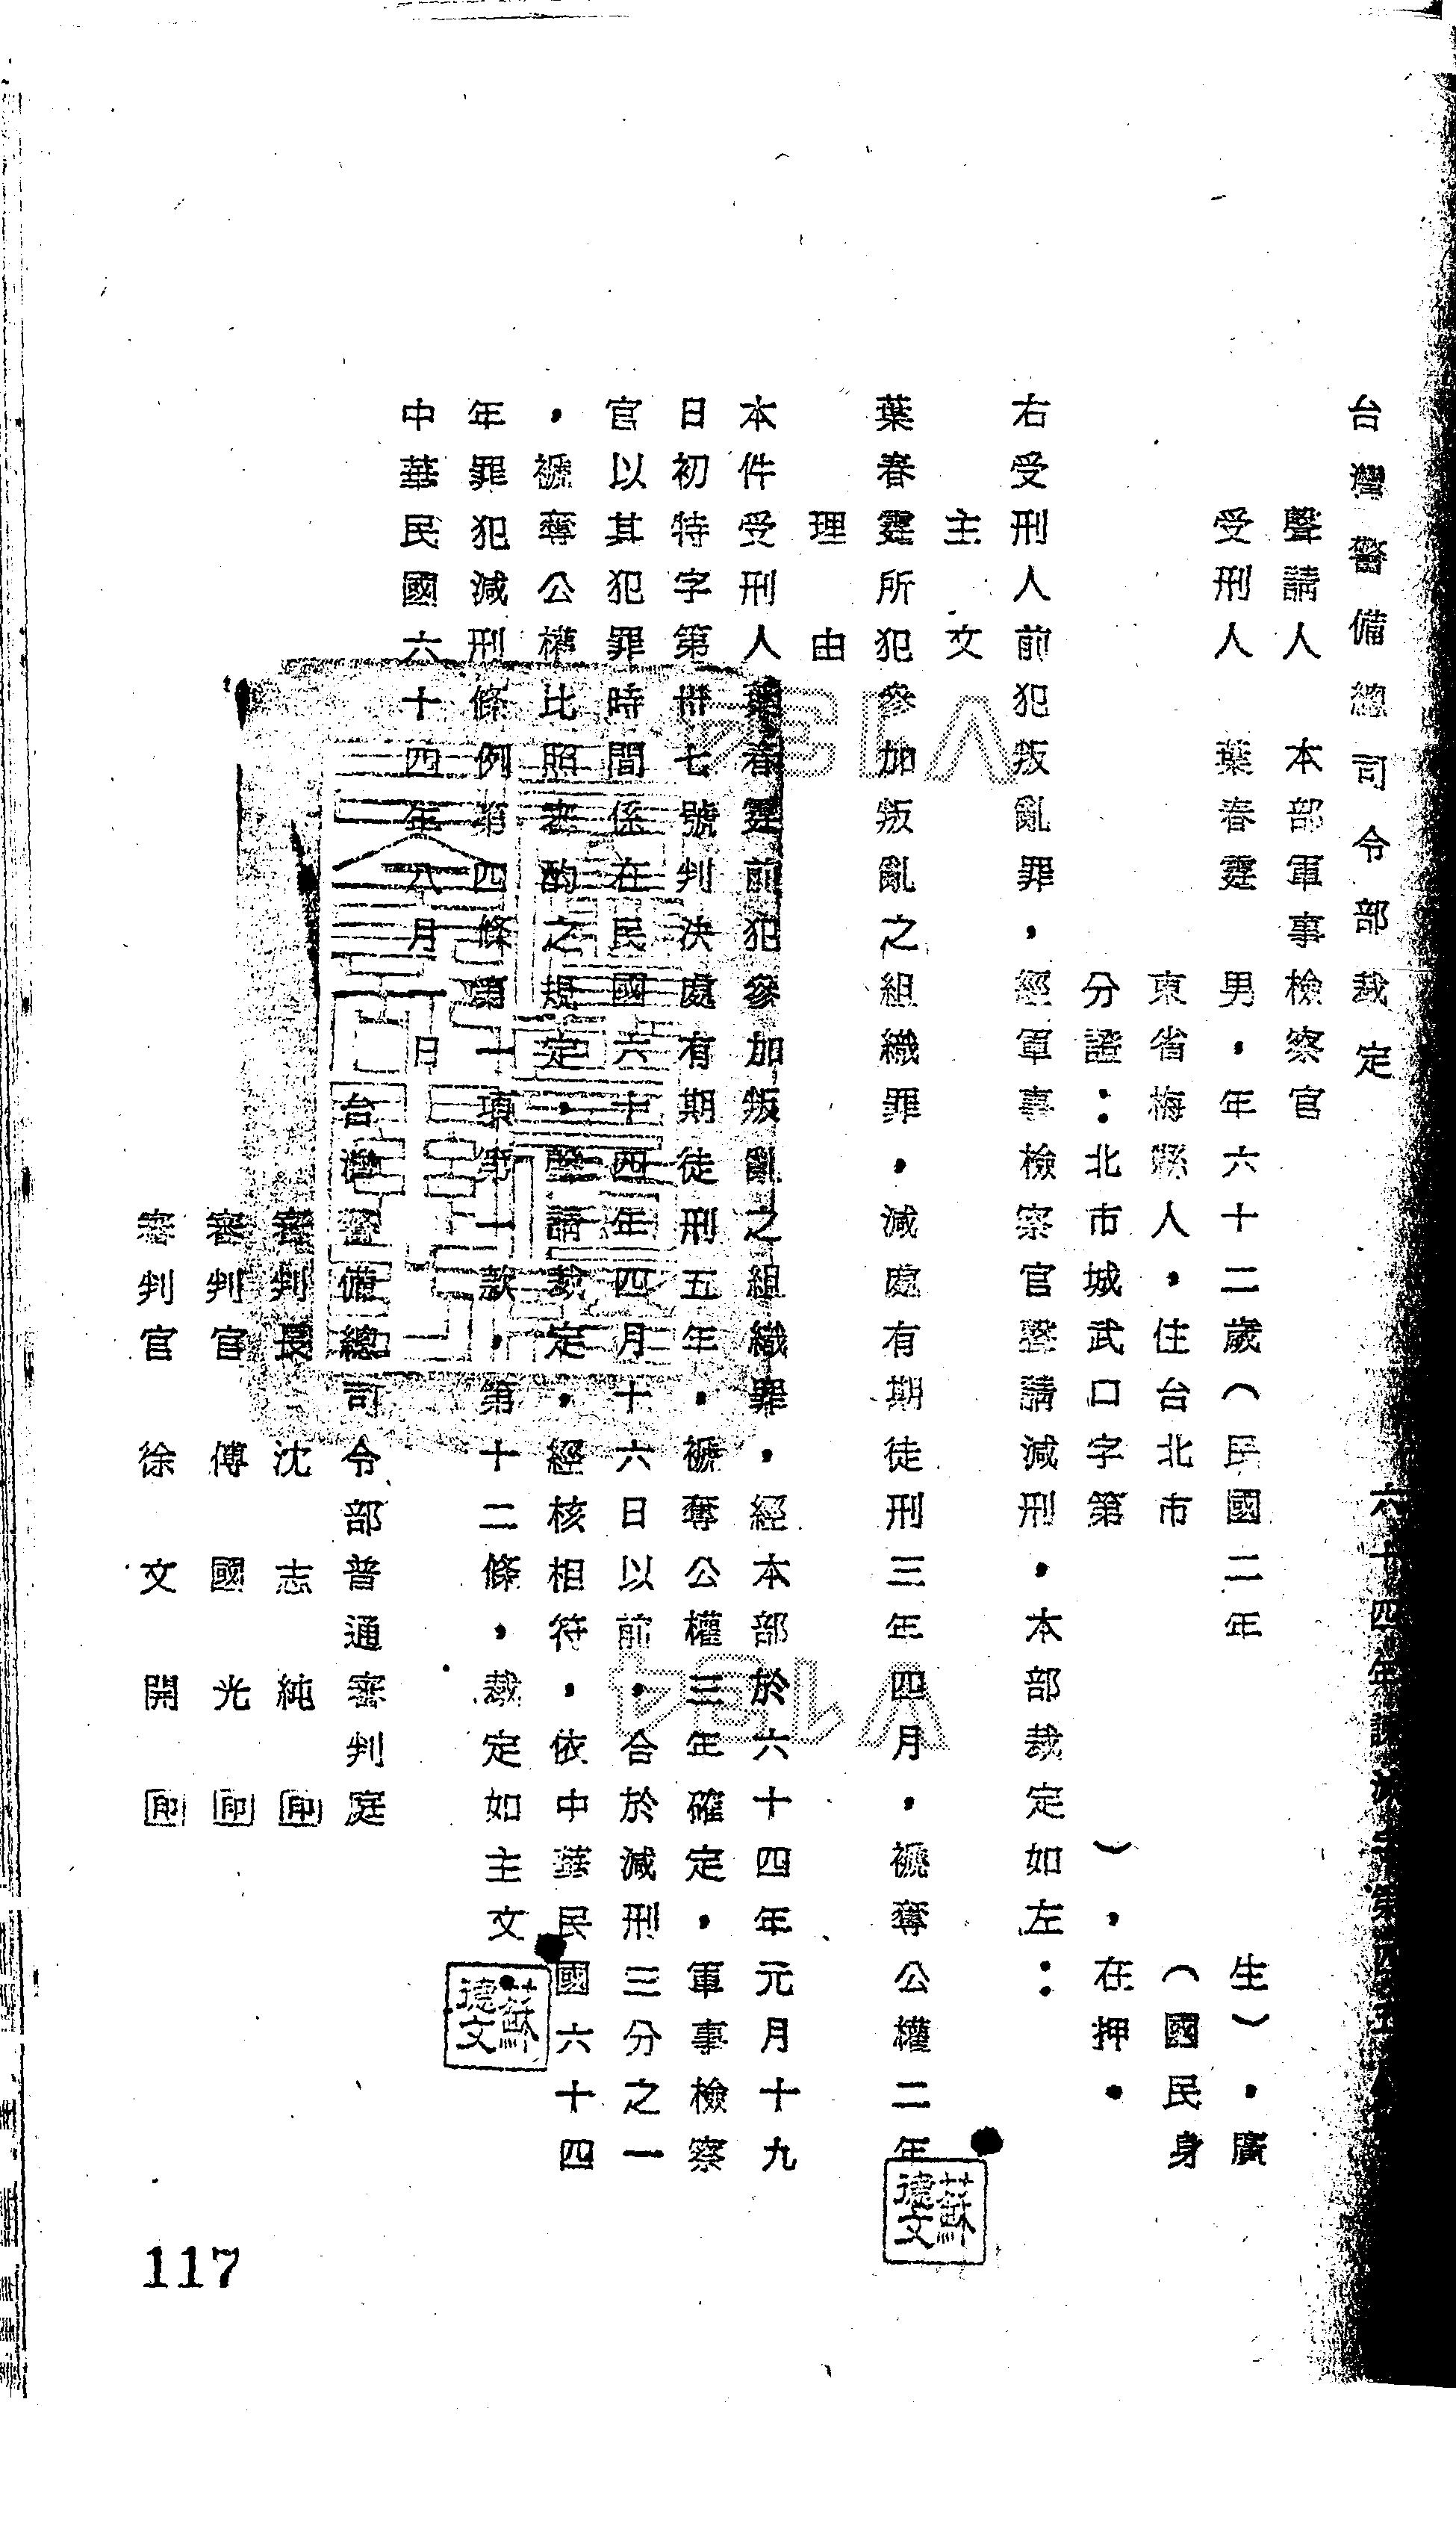 台灣警備總司令部裁定
六十四年
聲請人 本部軍事檢察官
受刑人 葉春霆 男，年六十二歲（民國二年 生），廣
東省梅縣人，住台北市 （國民身
分證：北市城武口字第 ），在押。
右受刑人前犯叛亂罪，經軍事檢察官聲請減刑，本部裁定如左：
主文
葉春霆所犯參加叛亂之組織罪，減處有期徒刑三年四月，褫奪公權二年
理由
本件受刑人葉春霆前犯參加叛亂之組織罪，經本部於六十四年元月十九
日初特字第卅七號判決處有期徒刑五年，褫奪公權三年確定，軍事檢察
官以其犯罪時間係在民國六十四年四月十六日以前，合於減刑三分之一
，褫奪公權比照者酌之規定，聲請裁定，經核相符，依中華民國六十四
年罪犯減刑條例第四條第一項第一款，第十二條，裁定如主文
中華民國六十四年八月一日
台灣警備總司令部普通審判庭
審判長 沈志純 印
審判官 傅國光 印
審判官 徐文開 印
蘇德文
蘇德文
117